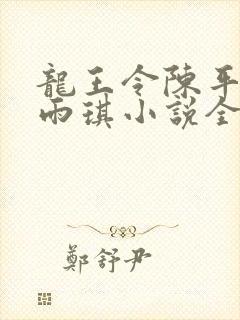 龍王令陳平
雨琪小說全
鄭舒尹